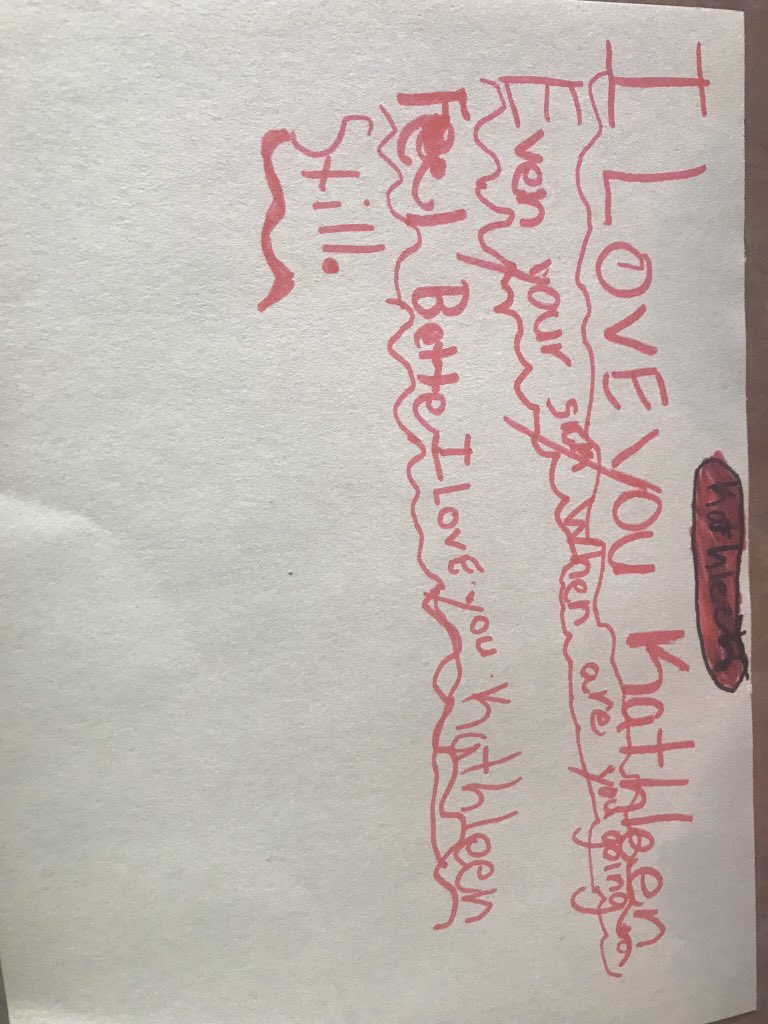 Kathleen
I LOVE YOU Kathleen
Even your sick when are you going to
Feel Bette I LOVE you Kathleen
Still.